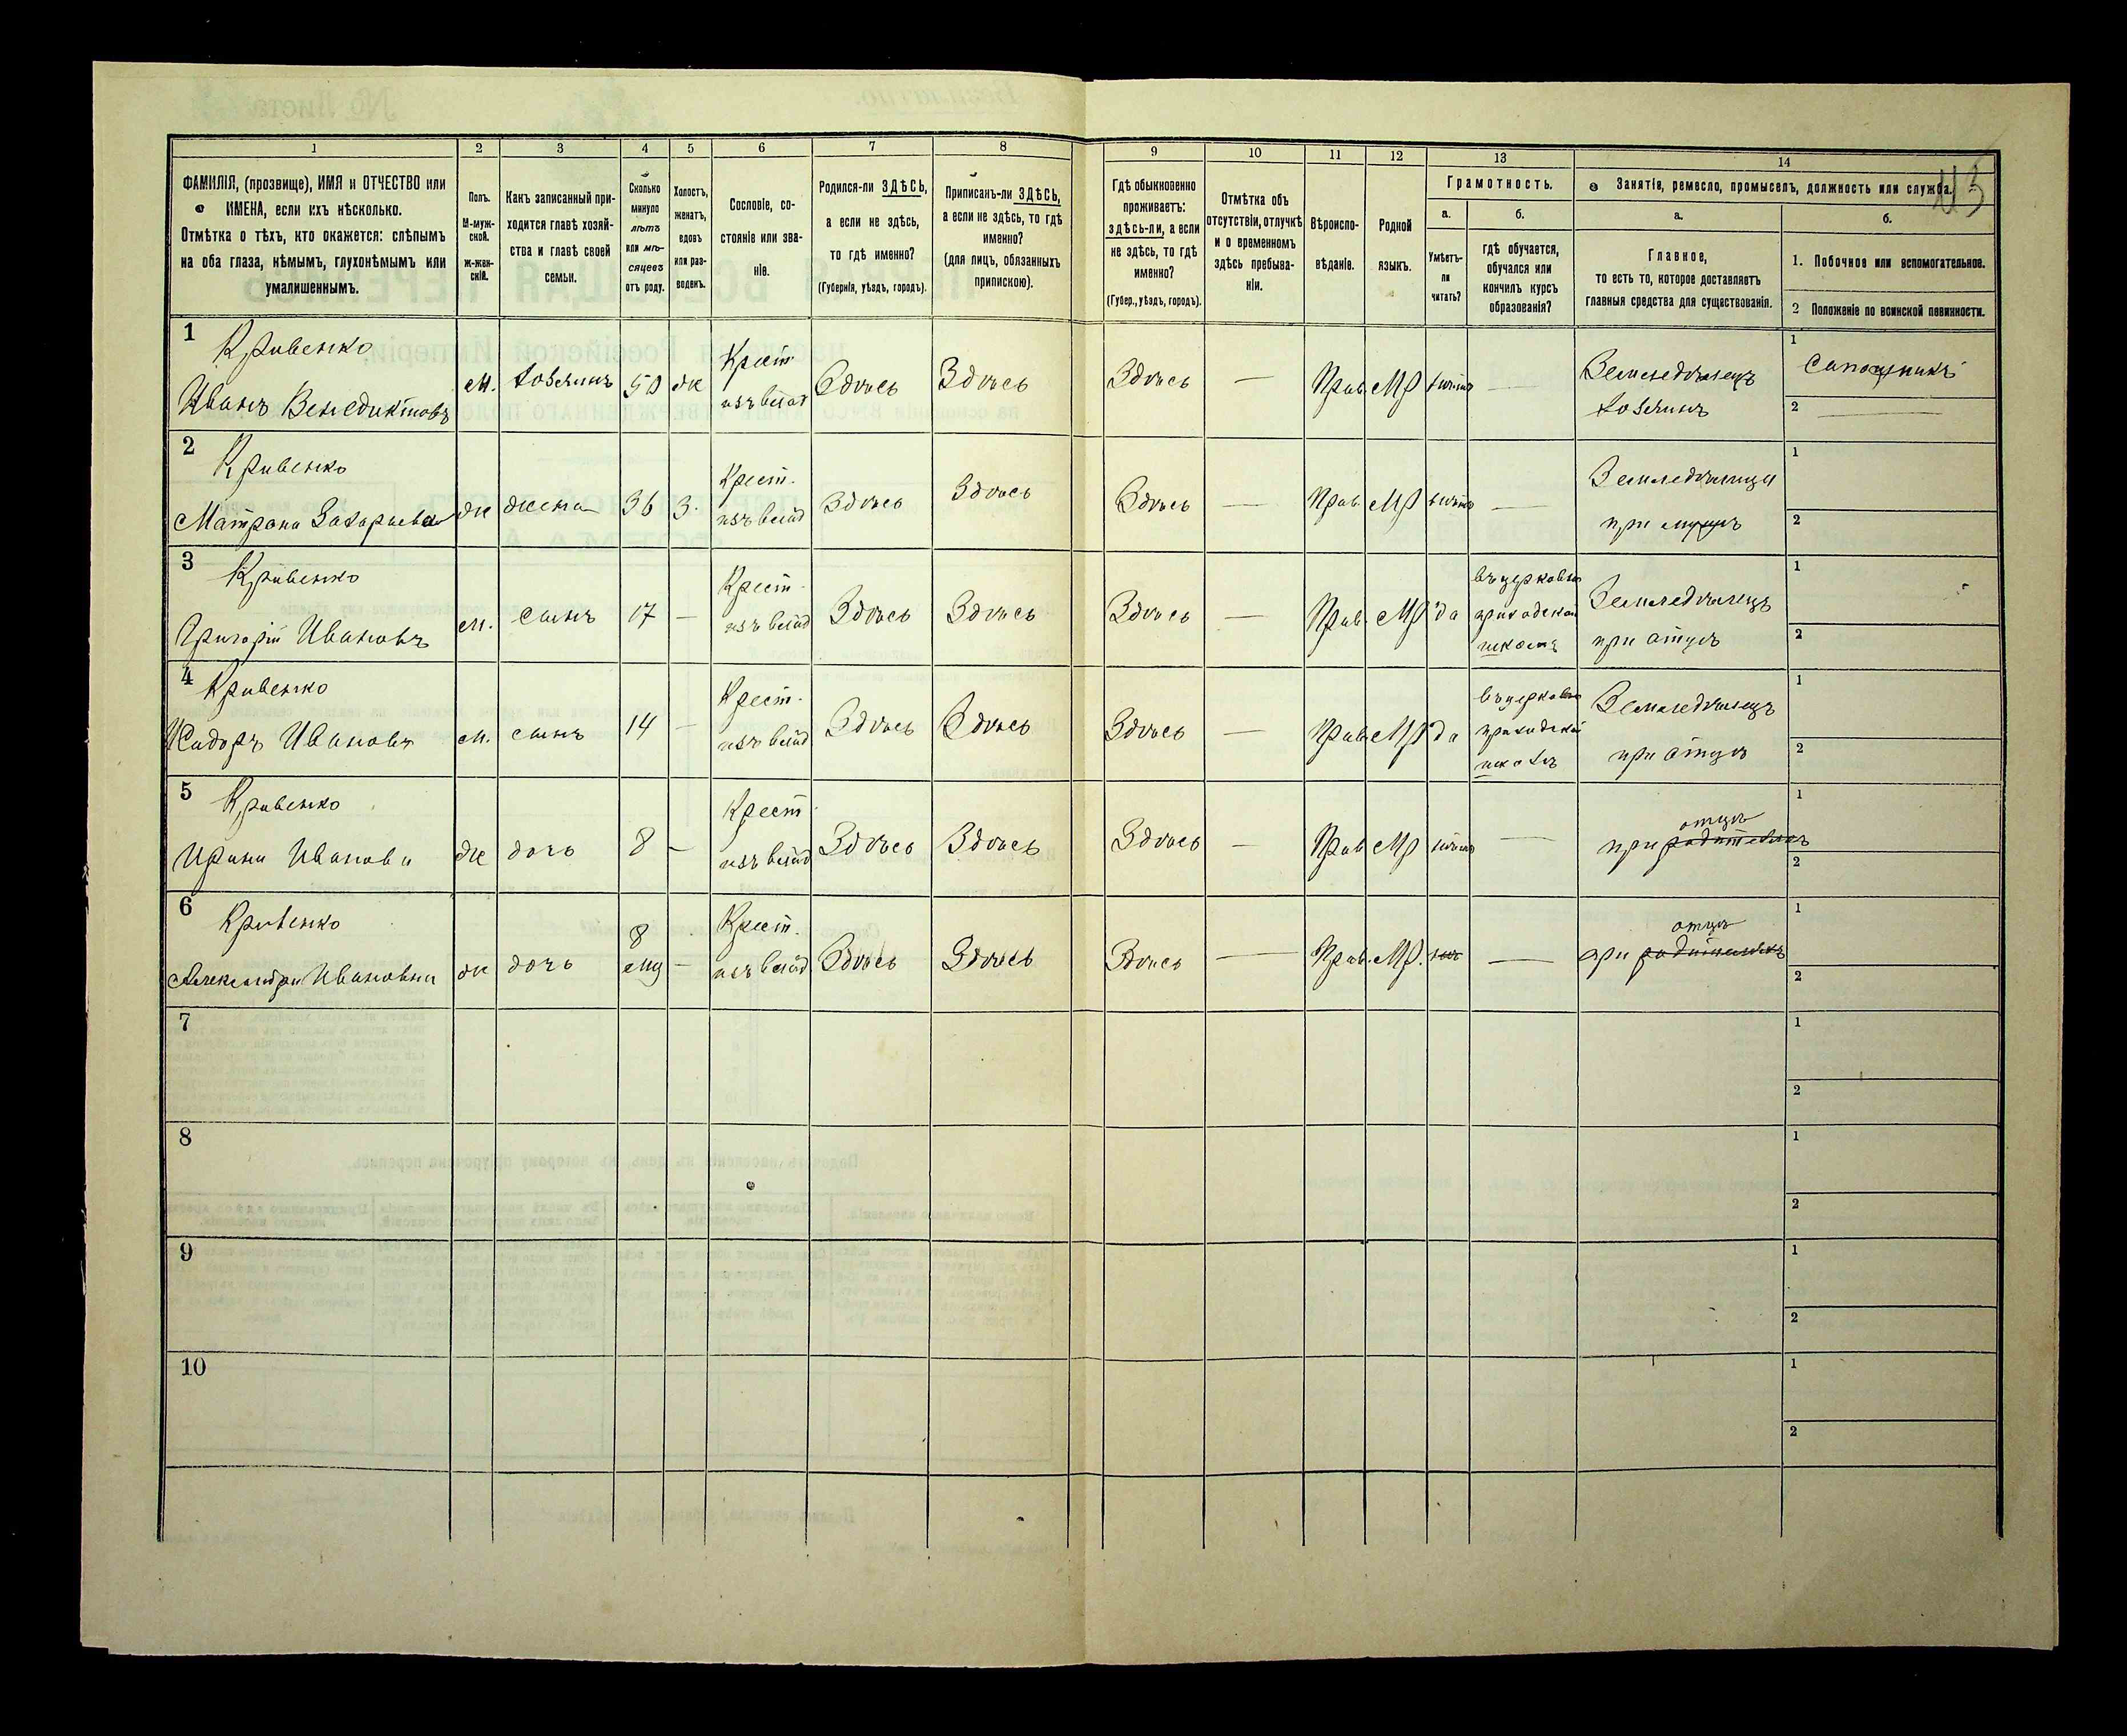 43
1 2 3 4 5 6 7 8 9 10 11 12 13 14
ФАМИЛІЯ, (прозвище), ИМЯ и ОТЧЕСТВО или
ИМЕНА, если ихъ нѣсколько.
Отмѣтка о тѣхъ, кто окажется: слѣпымъ
на оба глаза, нѣмымъ, глухонѣмымъ или
умалишеннымъ.
Полъ.
М-муж-
ской.
Ж-жен-
скій.
Какъ записанный при-
ходится главѣ хозяй-
ства и главѣ своей
семьи.
Сколько
минуло
лѣтъ
или мѣ-
сяцевъ
отъ роду.
Холостъ,
женатъ,
вдовъ
или раз-
веденъ.
Сословіе, со-
стояніе или зва-
ніе.
Родился-ли ЗДѢСЬ,
а если не здѣсь,
то гдѣ именно?
(Губернія, уѣздъ, городъ).
Приписанъ-ли ЗДѢСЬ,
а если не здѣсь, то гдѣ
именно?
(для лицъ, обязанныхъ
припискою).
Гдѣ обыкновенно
проживаетъ:
здѣсь-ли, а если
не здѣсь, то гдѣ
именно?
(Губер., уѣздъ, городъ).
Отмѣтка объ
отсутствіи, отлучкѣ
и о временномъ
здѣсь пребыва-
ніи.
Вѣроиспо-
вѣданіе.
Родной
языкъ.
Грамотность.
а.
Умѣетъ-
ли
читать?
б.
гдѣ обучается,
обучался или
кончилъ курсъ
образованія?
Занятіе, ремесло, промыселъ, должность или служба.
а.
Главное,
то есть то, которое доставляетъ
главныя средства для существованія.
б.
1. Побочное или вспомогательное.
2 Положеніе по воинской повинности.
1 Кривенко
Иванъ Венедиктовъ
м. хозяинъ 50 ж
Крест.
изъ влад
Здѣсь Здѣсь Здѣсь — Прав. МР —
Земледѣлецъ
хозяинъ
1 Сапожникъ
2 —
2 Кривенко
Матрона Захарьева
ж жена 36 З.
Крест.
изъ влад
Здѣсь Здѣсь Здѣсь — Прав. МР —
Земледѣлица
при мужѣ
1
2
3 Кривенко
Григорій Ивановъ
м. сынъ 17 —
Крест.
изъ влад
Здѣсь Здѣсь Здѣсь — Прав. МР да
въ церковно
приходской
школѣ
Земледѣлецъ
при отцѣ
1
2
4 Кривенко
Исидоръ Ивановъ
м. сынъ 14 —
Крест.
изъ влад
Здѣсь Здѣсь Здѣсь — Прав. МР да
въ церковно
приходской
школѣ
Земледѣлецъ
при отцѣ
1
2
5 Кривенко
Ирина Иванова
ж дочь 8 —
Крест
изъ влад
Здѣсь Здѣсь Здѣсь — Прав МР —
отцѣ
при родителяхъ
1
2
6 Кривенко
Александра Ивановна
ж дочь 8
мц —
Крест.
изъ влад
Здѣсь Здѣсь Здѣсь — Прав. МР. —
отцѣ
при родителяхъ
1
2
7
1
2
8
1
2
9
1
2
10
1
2